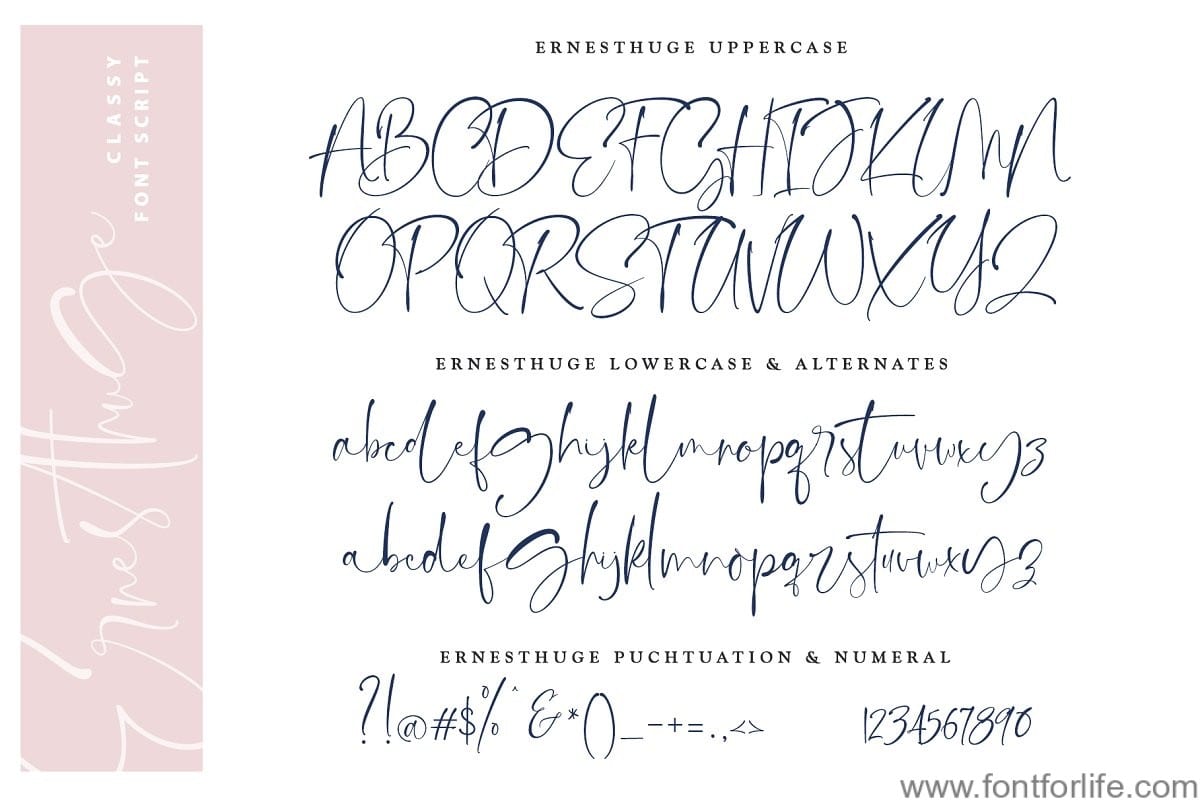 CLASSY
FONT SCRIPT
Ernesthuge
ERNESTHUGE UPPERCASE
ABCDEFGHIJKLMN
OPQRSTUVWXYZ
ERNESTHUGE LOWERCASE & ALTERNATES
abcdefghijklmnopqrstuvwxyz
abcdefghijklmnopqrstuvwxyz
ERNESTHUGE PUCHTUATION & NUMERAL
?!@#$%^&*()_-+=.,<> 1234567890
www.fontforlife.com